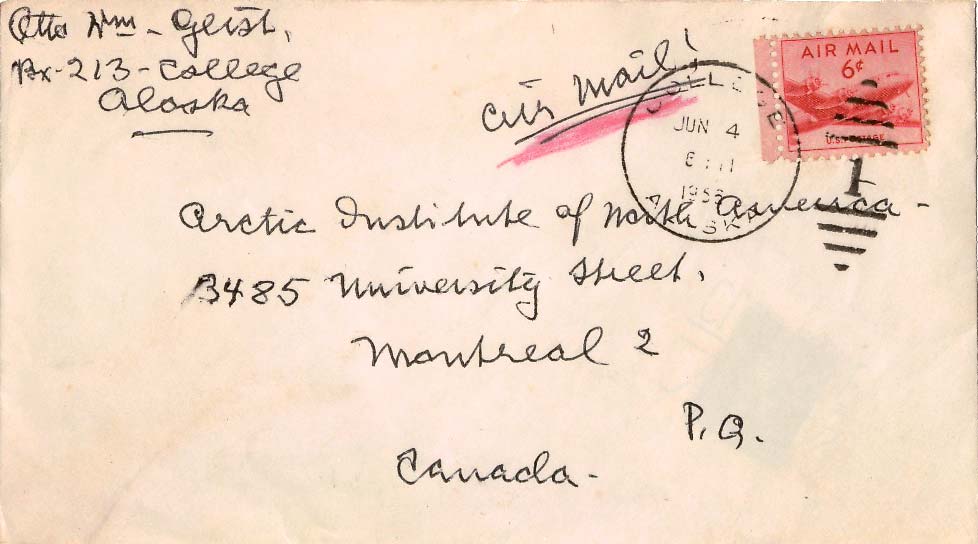 Otto Wm - Geist,
Bx-213-College
Alaska
Air Mail!
COLLEGE
JUN 4
1956
ALASKA
1
AIR MAIL
6¢
U.S. POSTAGE
Arctic Institute of North America -
3485 University Street,
Montreal 2
P.Q.
Canada -